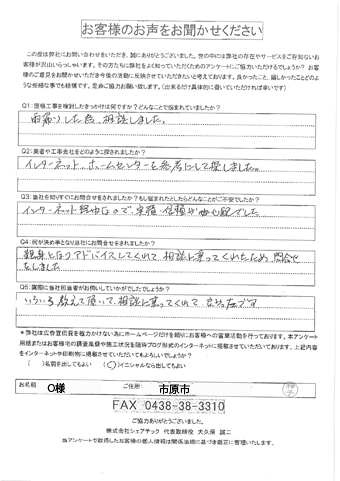 お客様のお声をお聞かせください
この度は弊社にお問い合わせをいただき、誠にありがとうございました。世の中には弊社の存在やサービスをご存知ないお
客様が沢山いらっしゃいます。その方たちに弊社をよく知っていただくためのアンケートにご協力いただけるでしょうか？ お客
様のご意見をお聞かせいただき今後の活動に反映させていただきたいと考えております。良かったこと、嬉しかったことどのよ
うな些細な事でも結構です。是非ご協力お願い致します。（出来るだけ具体的に書いていただければ幸いです）
Q1：屋根工事を検討したきっかけは何ですか？どんなことで悩まれていましたか？
雨漏りした為、相談しました。
Q2：業者や工事会社をどのように探されましたか？
インターネット、ホームセンターを参考にして探しました。
Q3：当社を知りすぐにお問合せをされましたか？もし悩まれたとしたらどんなことがご不安でしたか？
インターネット経由なので、実積・信頼が心配でした
Q4：何が決め手となり当社にお問合せをされましたか？
親身となりアドバイスしてくれて、相談に乗ってくれたため 問合せ
をしました
Q5：実際に当社担当者がお伺いしていかがでしたでしょうか？
いろいろ教えて頂いて、相談に乗ってくれて、
＊弊社は広告宣伝費を極力かけない為にホームページだけを頼りにお客様への営業活動を行っております。本アンケート
用紙またはお客様宅の調査風景や施工状況を随時ブログ形式のインターネットに掲載させていただいております。上記内容
をインターネットや印刷物に掲載させていただいてもよろしいでしょうか？
（ ）名前を出してもよい （○）イニシャルなら出してもよい
お名前 O様 ご住所： 市原市
FAX 0438-38-3310
ご協力ありがとうございました。
株式会社シェアテック 代表取締役 大久保 誠二
当アンケートで取得したお客様の個人情報は関係法規に基づき厳正に管理いたします。